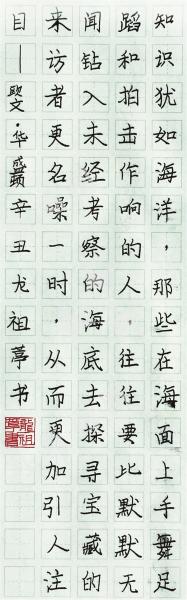 知识犹如海洋，那些在海面上手舞足
蹈和拍击作响的人，往往要比默默无
闻钻入未经考察的海底去探寻宝藏的
来访者更名噪一时，从而更加引人注
目—欧文·华盛顿辛丑龙祖书